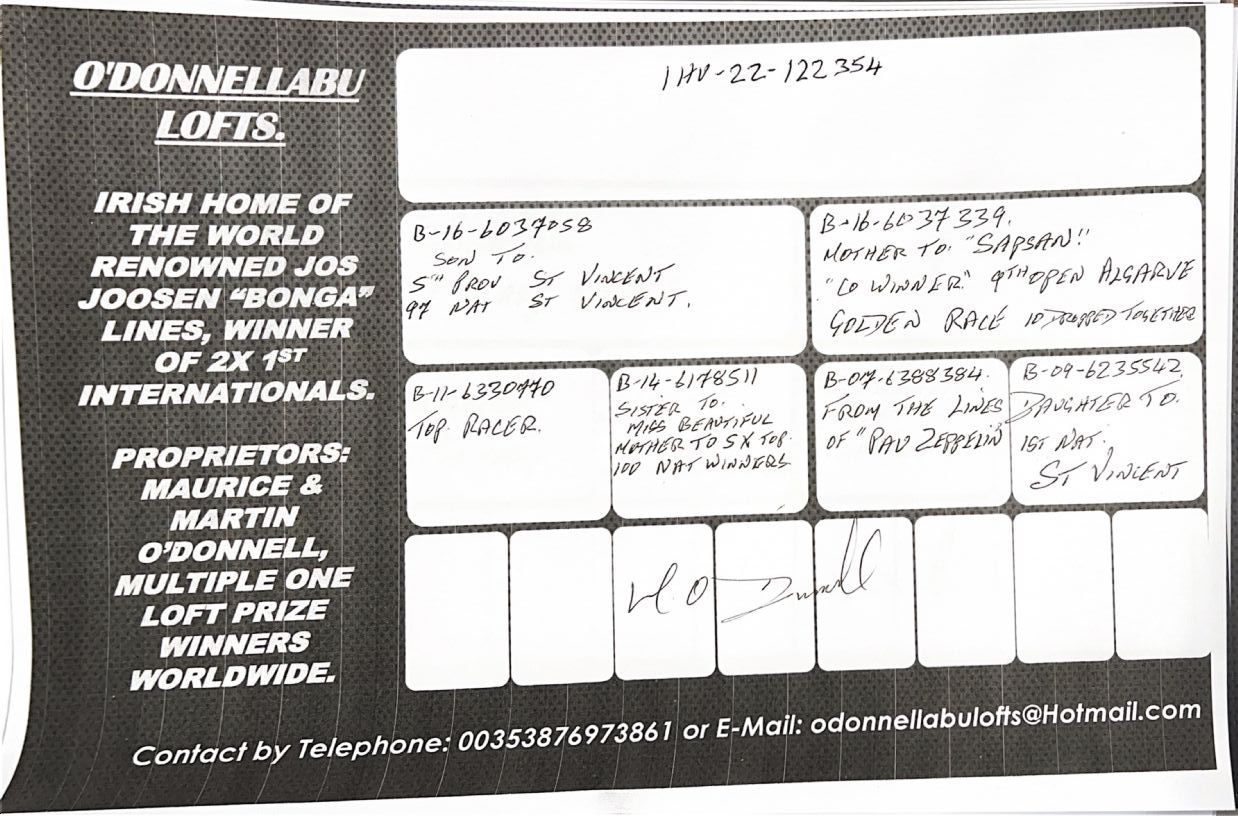 O'DONNELLABU
LOFTS.
IRISH HOME OF
THE WORLD
RENOWNED JOS
JOOSEN “BONGA”
LINES, WINNER
OF 2X 1ST
INTERNATIONALS.
PROPRIETORS:
MAURICE &
MARTIN
O’DONNELL,
MULTIPLE ONE
LOFT PRIZE
WINNERS
WORLDWIDE.
IHU-22-122354
B-16-6037058
SON TO.
5TH PROV ST VINCENT
97 NAT ST VINCENT.
B-16-6037339.
MOTHER TO. "SAPSAN!"
"CO WINNER" 9TH OPEN ALGARVE
GOLDEN RACE 10 DROPPED TOGETHER
B-11-6330770
TOP RACER.
B-14-6178511
SISTER TO.
MISS BEAUTIFUL
MOTHER TO 5X TOP.
100 NAT WINNERS
B-07-6388384.
FROM THE LINES
OF "PAU ZEPPELIN
B-09-6235542.
DAUGHTER TO.
1ST NAT.
ST VINCENT
M. O Donnell
Contact by Telephone: 00353876973861 or E-Mail: odonnellabulofts@Hotmail.com